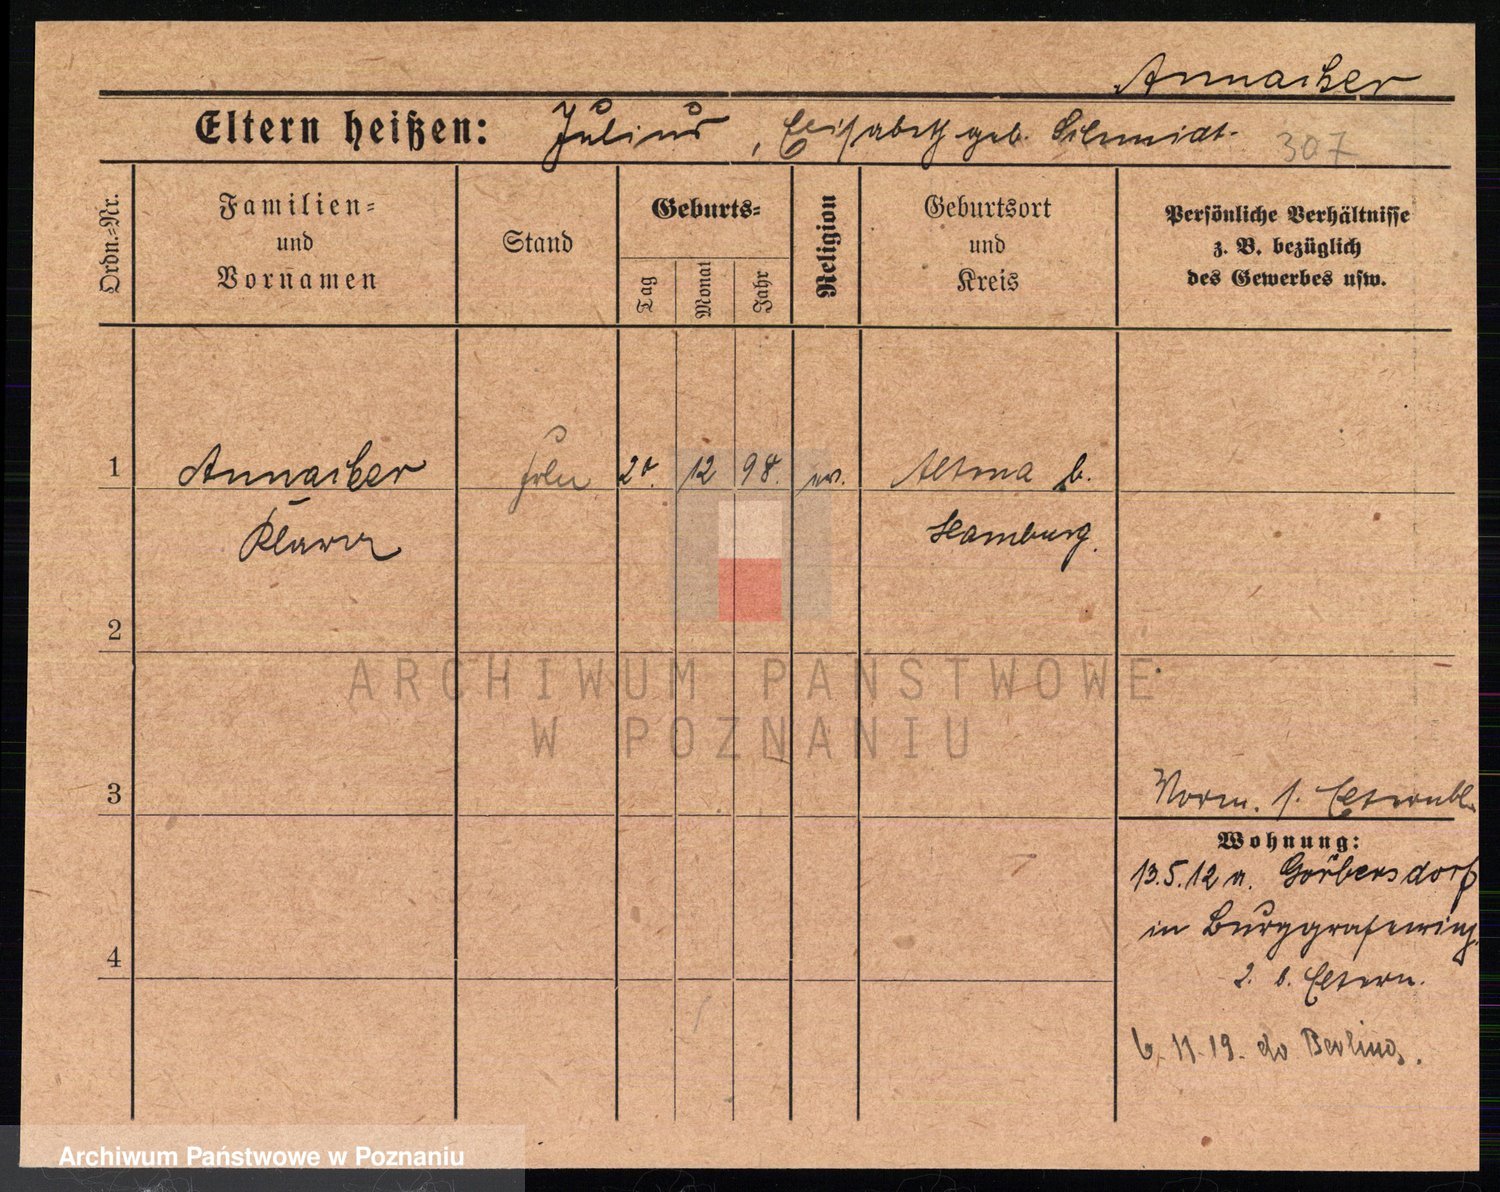 Annacker
Eltern heißen: Julius, Elisabeth geb. Schmidt.
307
Ordn.=Nr.
Familien=
und
Vornamen
Stand
Geburts=
Tag
Monat
Jahr
Religion
Geburtsort
und
Kreis
Persönliche Verhältnisse
z. B. bezüglich
des Gewerbes usw.
1
Annacker
Klara
Frln
12 98. ev.
Altona b.
Hamburg.
2
ARCHIWUM PAŃSTWOWE
W POZNANIU
3
Vorm. s. Elternbl.
Wohnung:
13.5.12 a. Görbersdorf
in Burggrafenring
2. b. Eltern.
6.11.19. do Berlina.
4
Archiwum Państwowe w Poznaniu